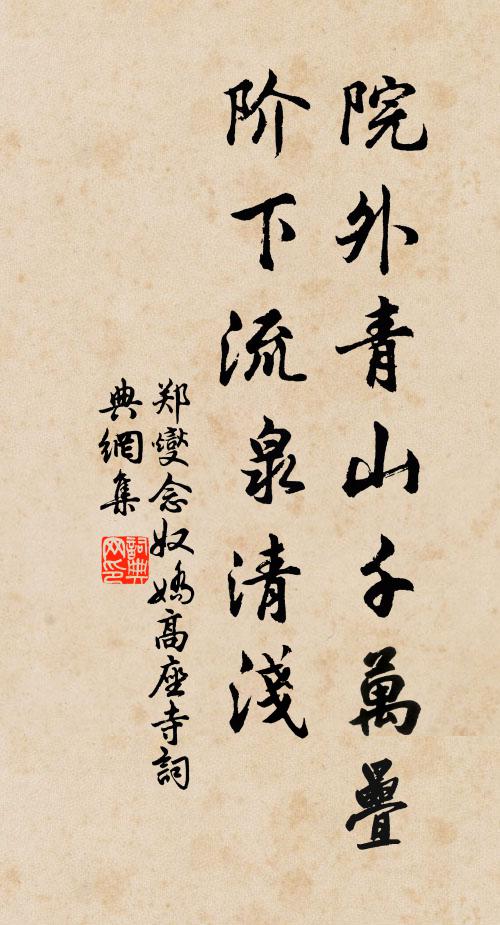 院外青山千萬疊
阶下流泉清淺
郑燮念奴嬌高座寺詞
典網集
詞典
网印